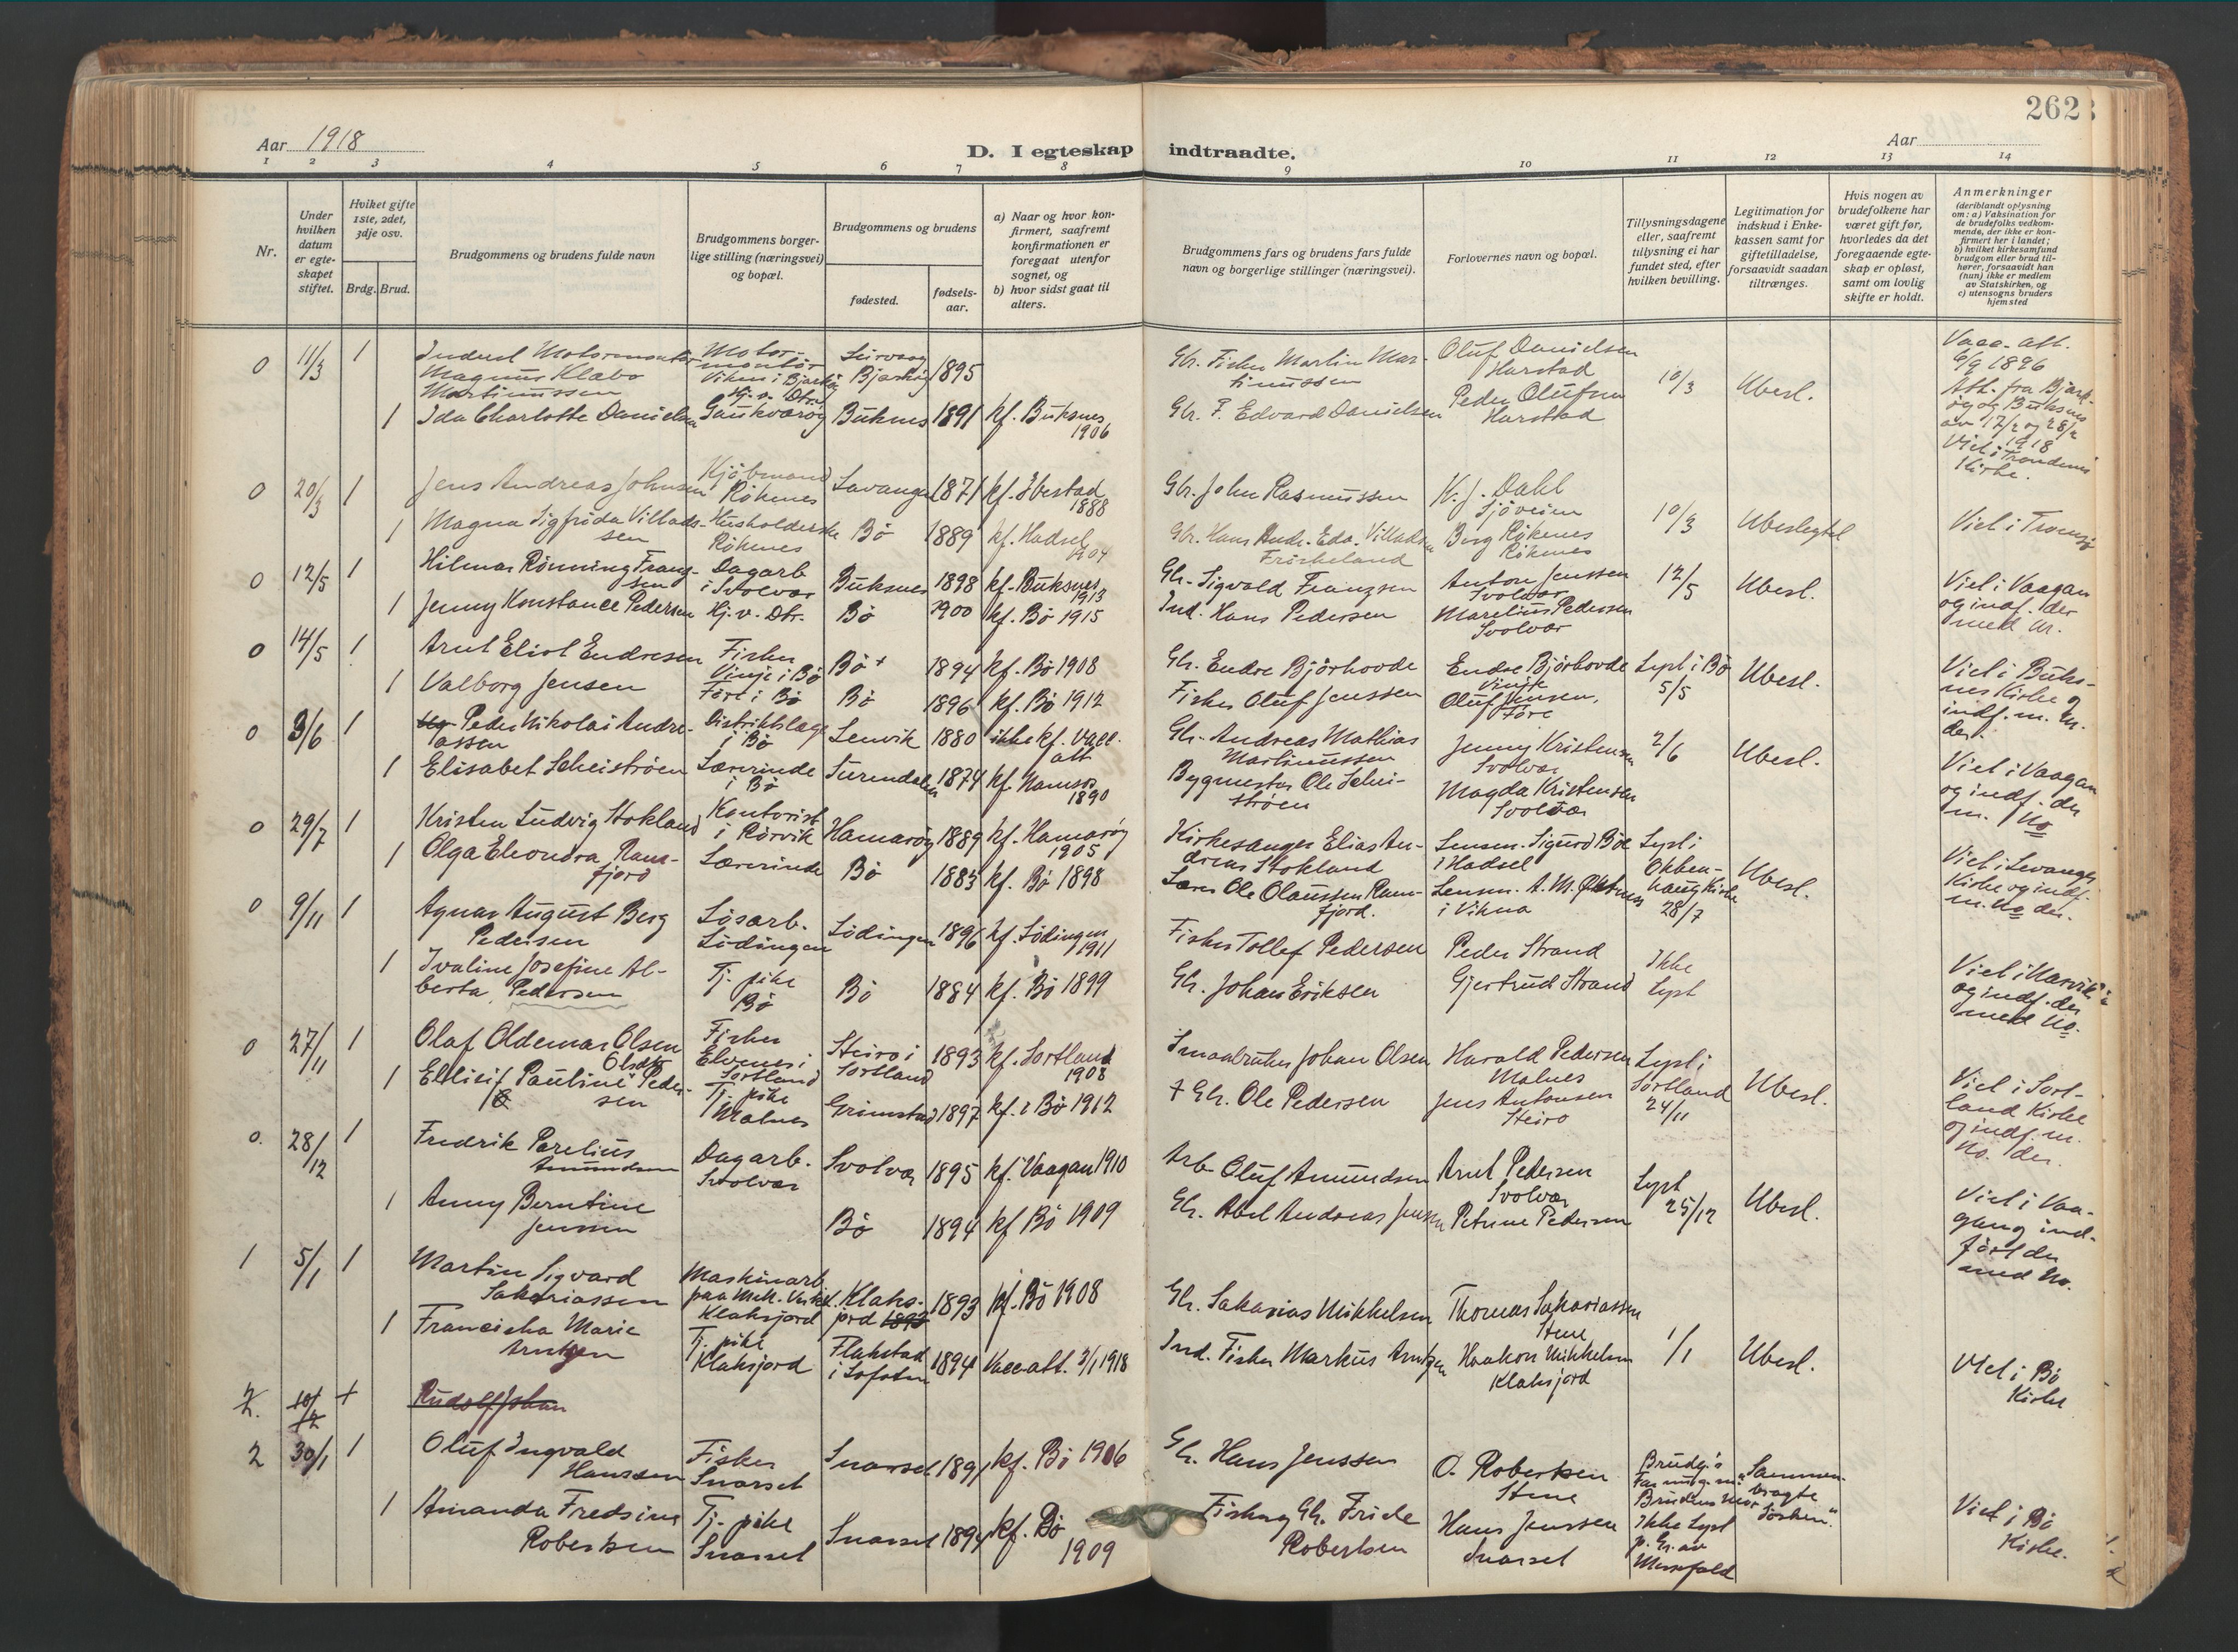 262
Aar 1918
D. I egteskap indtraadte.
Aar
1 2 3 4 5 6 7 8 9 10 11 12 13 14
Nr.
Under hvilken datum er egteskapet stiftet.
Hviket gifte 1ste, 2det, 3dje osv.
Brdg. Brud.
Brudgommens og brudens fulde navn
Brudgommens borgerlige stilling (næringsvei) og bopæl.
Brudgommens og brudens
fødested.
fødselsaar.
a) Naar og hvor konfirmert, saafremt konfirmationen er foregaat utenfor sognet, og
b) hvor sidst gaat til alters.
Brudgommens fars og brudens fars fulde navn og borgerlige stillinger (næringsvei).
Forlovernes navn og bopæl.
Tillysningsdagene eller, saafremt tillysning ei har fundet sted, efter hvilken bevilling.
Legitimation for indskud i Enkekassen samt for giftetilladelse, forsaavidt saadan tiltrænges.
Hvis nogen av brudefolkene har været gift før, hvorledes da det foregaaende egteskap er opløst, samt om lovlig skifte er holdt.
Anmerkninger
(deriblandt oplysning om: a) Vaksination for de brudefolks vedkommende, der ikke er konfirmert her i landet; b) hvilket kirkesamfund brudgom eller brud tilhører, forsaavidt han (hun) ikke er medlem av Statskirken, og c) utensogns bruders hjemsted
0 11/3 1 Magnus Klæbo Martinussen Motormontør Viken i Bjarkøy Bjarkøy 1895 Gbr. Fisker Martin Martinussen Oluf Danielsen Harstad 10/3 Ubesl. Vacc. att. 6/9 1896
1 Ida Charlotte Danielsen Gaukværøy Buksnes 1891 kf. Buksnes 1906 Gbr. F. Edvard Danielsen Peder Olufsen Harstad Att. fra Bjarkøy og Buksnes av 17/2 og 28/2 1918 Viet i Trondenes Kirke.
0 20/3 1 Jens Andreas Johnsen Kjöbmand Rökenes Lavangen 1871 kf. Ibestad 1888 Gbr. John Rasmussen K. J. Dahl Sjöveien 10/3 Ubeslegtet Viet i Tromsö
1 Magna Sigfrida Villadsen Husholderske Rökenes Bö 1889 kf. Hadsel 1904 Gbr. Hans Andr. Edv. Villadsen Friskeland Berg Rökenes Rökenes
0 12/5 1 Hilmar Rönning Franzsen Dagarb i Svolvær Buksnes 1898 kf. Buksnes 1913 Gbr. Sigvald Franzsen Anton Jenssen Svolvær 12/5 Ubesl. Viet i Vaagan og indf. der med Nr.
1 Jenny Konstance Pedersen Hj. v. Dtr. Bö 1900 kf. Bö 1915 Ind. Hans Pedersen Marelius Pedersen Svolvær
0 14/5 1 Arnt Eliot Endresen Fisker Vinje i Bö Bö 1894 kf. Bö 1908 Gbr. Endre Björhovde Endre Björhovde Vinje Lyst i Bö 5/5 Ubesl. Viet i Buksnes Kirke og indf. m. Nr. der.
1 Valborg Jensen Före i Bö Bö 1896 kf. Bö 1912 Fisker Oluf Jenssen Oluf Jensen, Före
0 3/6 1 Peder Nikolai Andreassen Distriktslæge i Bö Lenvik 1880 ikke kf. Vacc. att Gbr. Andreas Mathias Martinussen Jenny Kristensen Svolvær 2/6 Ubesl. Viet i Vaagan og indf. der m. No
1 Elisabet Scheiströen Lærerinde i Bö Surendalen 1874 kf. Namsos 1890 Bygmester Ole Scheiströen Magda Kristensen Svolvær
0 29/7 1 Kristen Ludvig Stokland Kontorist i Rörvik Hamaröy 1889 kf. Hamaröy 1905 Kirkesanger Elias Andreas Stokland Lensm. Sigurd Böe i Hadsel Lyst i Okkenhaug Kirke 28/7 Ubesl. Viet i Levanger Kirke og indf. m. No der.
1 Olga Eleonora Ramfjord Lærerinde Bö 1883 kf. Bö 1898 Lærer Ole Olaussen Ramfjord. Lensm. A. M. i Vikna
0 9/11 1 Agnar August Berg Pedersen Løsarb. Lödingen Lödingen 1896 kf. Lödingen 1911 Fisker Tollef Pedersen Peder Strand Ikke Lyst Viet i Narvik og indf. der med No.
1 Ivaline Josefine Alberta Pedersen Tj. pike Bö Bö 1884 kf. Bö 1899 Gbr. Johan Eriksen Gjertrud Strand
0 27/11 1 Olaf Oldemar Olsen Fisker Elvenes i Sortland Steiro i Sortland 1893 kf. Sortland 1908 Smaabruker Johan Olsen Harald Pedersen Malnes Lyst i Sortland 24/11 Ubesl. Viet i Sortland Kirke og indf. m. No. der.
1 Ellicif Pauline Olsdtr Pedersen Tj. pike Malnes Grimstad 1897 kf. i Bö 1912 † Gbr. Ole Pedersen Jens Antonsen Steiro
0. 28/12 1 Fredrik Parelius Amundsen Dagarb. Svolvær Svolvær 1895 kf. Vaagan 1910 Arb. Oluf Amundsen Arnt Pedersen Svolvær Lyst 25/12 Ubesl. Viet i Vaagan og indfört der med No.
1 Anny Berntine Jenssen Bö 1894 kf Bö 1909 Gbr. Abel Andreas Jenssen Petrine Pedersen
1 5/1 1 Martin Sigvard Sakariassen Maskinarb. paa Mek. Verkst. Klaksjord Klaksjord 1893 kf. Bö 1908 Gbr. Sakarias Mikkelsen Thomas Sakariassen Stene 1/1 Ubesl. Viet i Bö Kirke
1 Franciska Marie Arntzen Tj. pike Klaksjord Flakstad i Lofoten 1894 Vacc. att. 3/1 1918 Ind. Fisker Markus Arntzen Haakon Mikkelsen Klaksjord
2. 10/2 Rudolf Johan
2 30/1 1 Oluf Ingvald Hanssen Fisker Snarset Snarset 1891 kf. Bö 1906 Gbr. Hans Jenssen O. Robertsen Stene Brudg's Far og Brudens Mor "Sammenbragte Sösken". Viet i Bö Kirke.
1 Amanda Fredsine Robertsen Tj. pike Snarset Snarset 1894 kf. Bö 1909 Fisker og Gbr. Fride Robertsen Hans Jenssen Snarset Ikke Lyst p. Gr. av Messefald